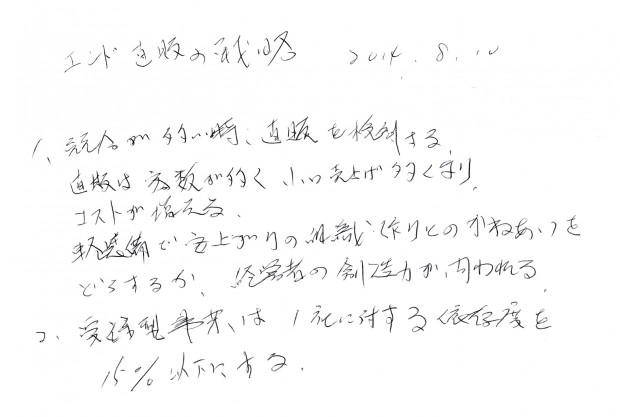 エンド直販の戦略 2014.8.10
1、競合が多い時、直販を検討する、
直販は客数が多く小口売上げ多くなり、
コストが増える、
軽装備で安上がりの組織作りとのかねあいを
どうするか、経営者の創造力が問われる、
2、受注型事業、は1社に対する依存度を
15%以下にする、